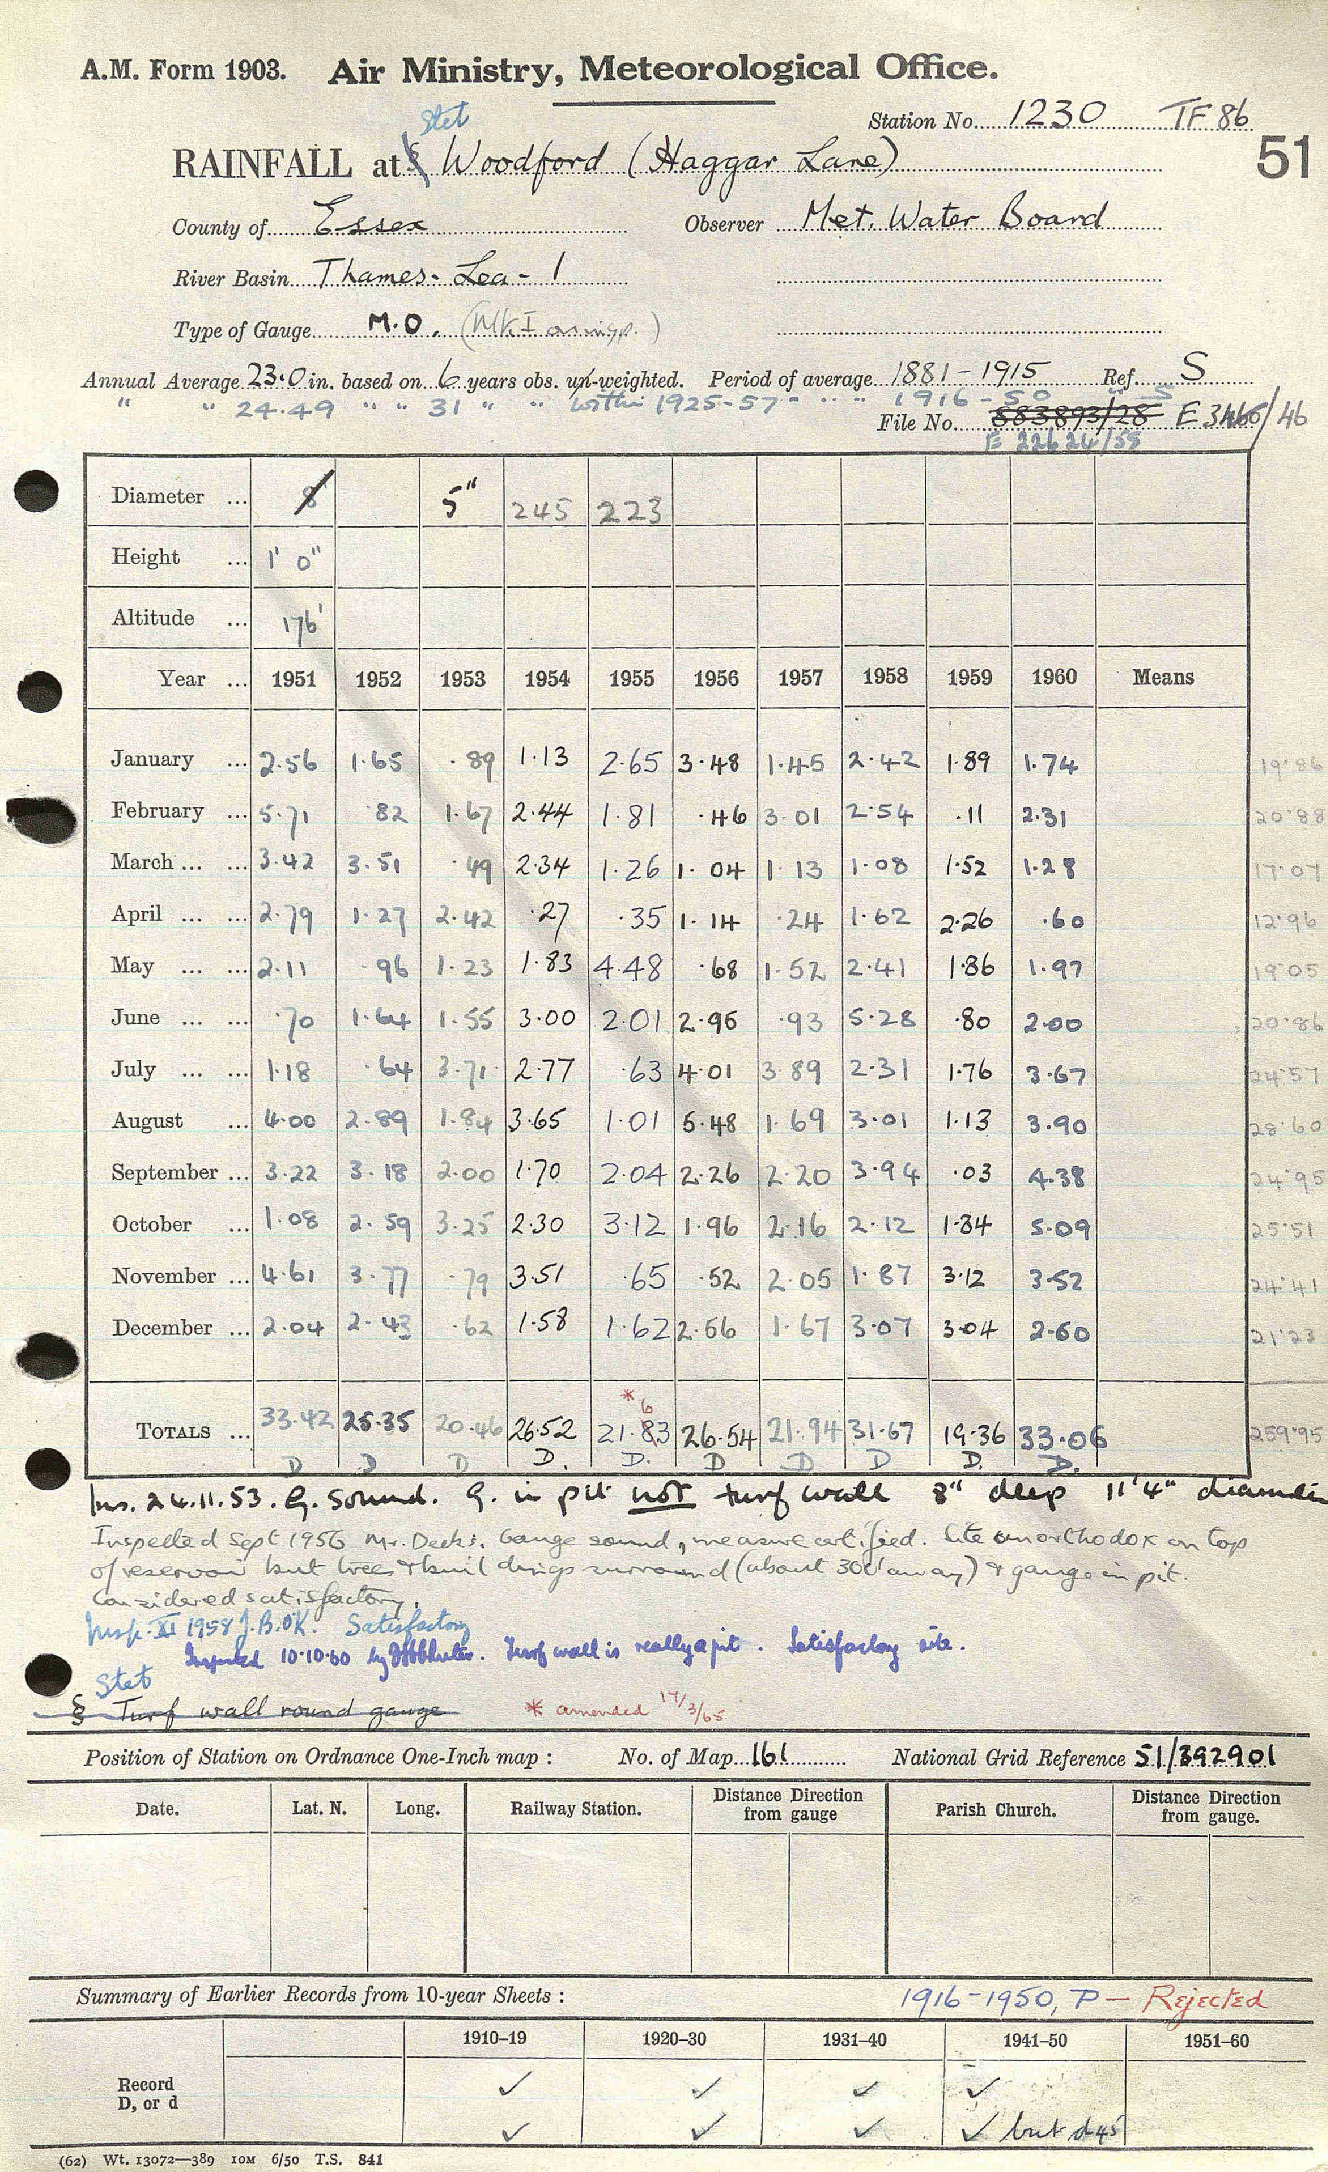 A.M. Form 1903. Air Ministry, Meteorological Office.
Stet
Station No. 1230 TF 86
RAINFALL at § Woodford (Haggar Lane) 51
County of Essex Observer Met. Water Board
River Basin Thames - Lea - 1
Type of Gauge M.O. (Mk I
Annual Average 23.0 in. based on 6 years obs. un-weighted. Period of average 1881-1915 Ref. S
" " 24.49 " " 31 " " within 1925-57 - " " " 1916-50 " S
File No. 883893/28 E 3466/46
E 22624/55
Diameter ... 8 5" 245 223
Height ... 1' 0"
Altitude ... 176'
Year ... 1951 1952 1953 1954 1955 1956 1957 1958 1959 1960 Means
January ... 2.56 1.65 .89 1.13 2.65 3.48 1.45 2.42 1.89 1.74 19.86
February ... 5.71 .82 1.67 2.44 1.81 .46 3.01 2.54 .11 2.31 20.88
March ... ... 3.42 3.51 .49 2.34 1.26 1.04 1.13 1.08 1.52 1.28 17.07
April ... ... 2.79 1.27 2.42 .27 .35 1.14 .24 1.62 2.26 .60 12.96
May ... ... 2.11 .96 1.23 1.83 4.48 .68 1.52 2.41 1.86 1.97 19.05
June ... ... .70 1.64 1.55 3.00 2.01 2.95 .93 5.28 .80 2.00 20.86
July ... ... 1.18 .64 3.71 2.77 .63 4.01 3.89 2.31 1.76 3.67 24.57
August ... 4.00 2.89 1.84 3.65 1.01 5.48 1.69 3.01 1.13 3.90 28.60
September ... 3.22 3.18 2.00 1.70 2.04 2.26 2.20 3.94 .03 4.38 24.95
October ... 1.08 2.59 3.25 2.30 3.12 1.96 2.16 2.12 1.84 5.09 25.51
November ... 4.61 3.77 .79 3.51 .65 .52 2.05 1.87 3.12 3.52 24.41
December ... 2.04 2.43 .62 1.58 1.62 2.56 1.67 3.07 3.04 2.60 21.23
* 6
TOTALS ... 33.42 25.35 20.46 26.52 21.83 26.54 21.94 31.67 19.36 33.06 259.95
D D D D. D. D D D D. D.
Ins. 24.11.53. G. sound. G. in pit not turf wall 8" deep 11'4" diameter
Inspected Sept 1956 Mr. Deeks. Gauge sound, measure certified. Site unorthodox on top
of reservoir but trees & buildings surround (about 300' away) & gauge in pit.
Considered satisfactory.
Insp. XI 1958 J.B. OK. Satisfactory
Inspected 10.10.60 by Turf wall is really a pit. Satisfactory site.
Stet
§ Turf wall round gauge * amended 17/3/65
Position of Station on Ordnance One-Inch map : No. of Map 161 National Grid Reference 51/392901
Date. Lat. N. Long. Railway Station. Distance Direction from gauge Parish Church. Distance Direction from gauge.
Summary of Earlier Records from 10-year Sheets : 1916-1950, P - Rejected
1910-19 1920-30 1931-40 1941-50 1951-60
Record ✓ ✓ ✓ ✓
D, or d ✓ ✓ ✓ ✓ but d 45
(62) Wt. 13072—389 10M 6/50 T.S. 841